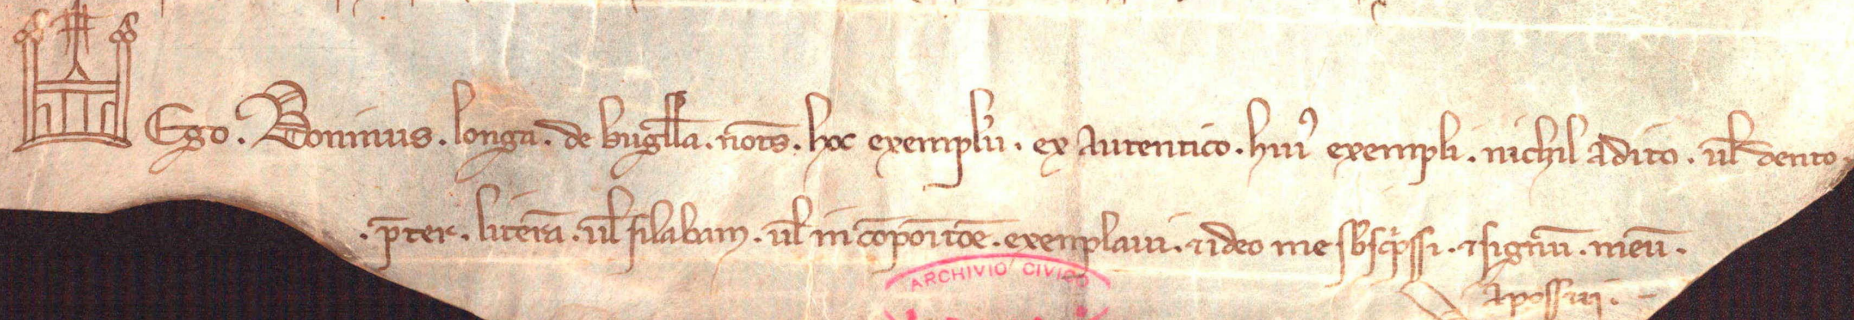 Ego . Boninus . longa . de bugella . not̄s . hoc exemplū . ex autentico . huiꝰ exempli . nichil adito . ul̄ dento
. p̄ter . literā . ul̄ silabam . ul̄ in cōpoītōe . exenplaui . ⁊ ideo me sb̄sc̄pssi . ⁊ signū . meū .
ARCHIVIO CIVICO
apossui .